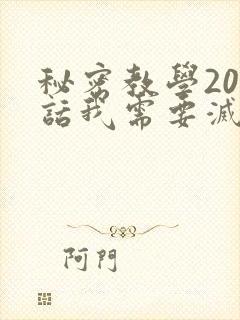 秘密教學20
話我需要滅
阿門